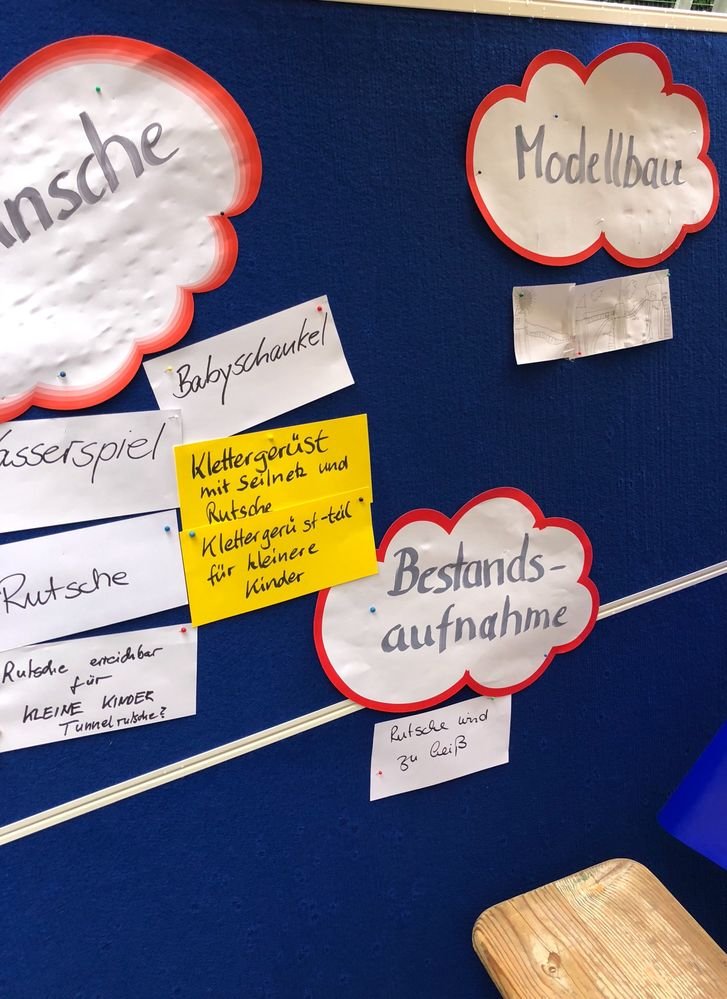 nsche
Babyschaukel
asserspiel
Klettergerüst
mit Seilnetz und
Rutsche
Klettergerüst-teil
für kleinere
Kinder
Rutsche
Rutsche erreichbar
für
KLEINE KINDER
Tunnelrutsche?
Modellbau
Bestands-
aufnahme
Rutsche wird
zu heiß